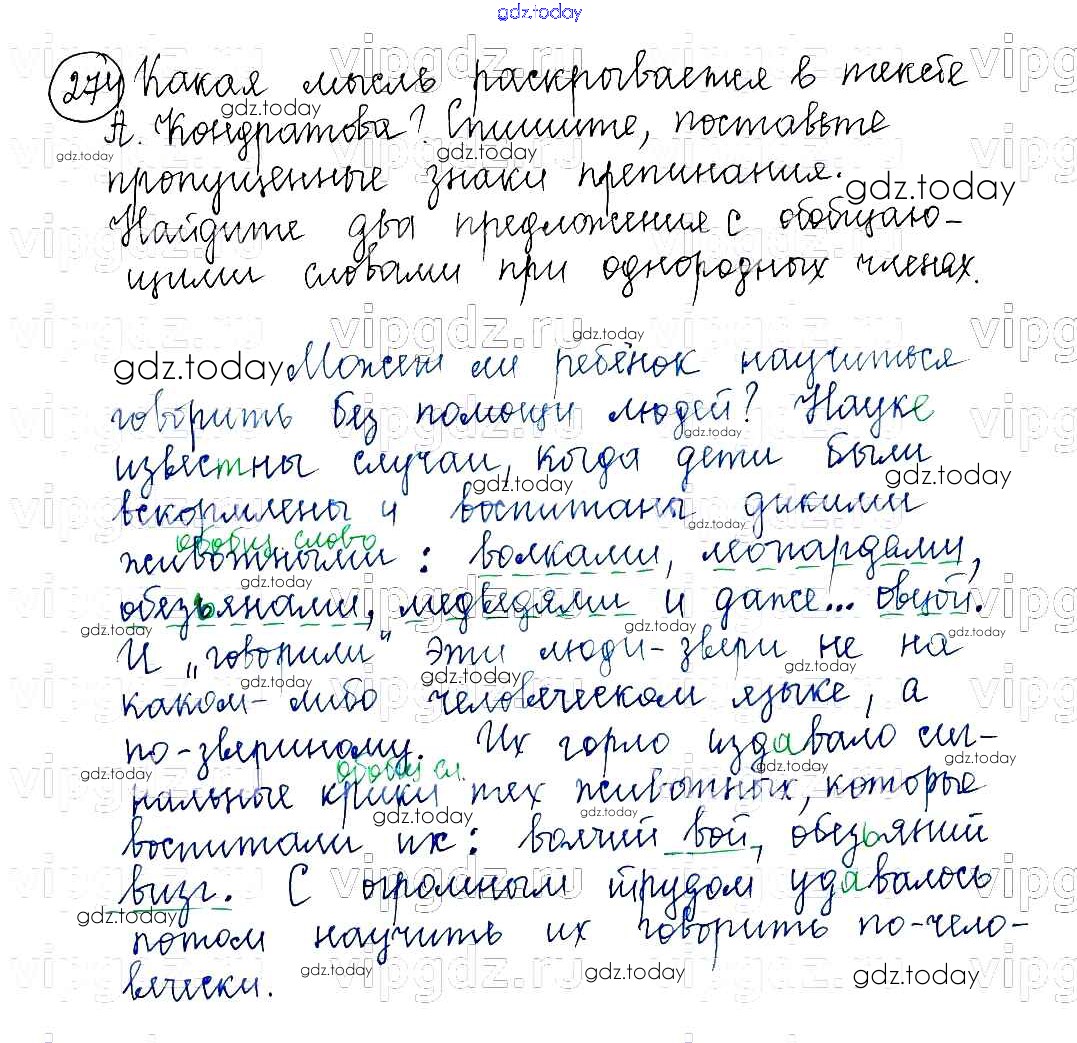 gdz.today
274 Какая мысль раскрывается в тексте
А. Кондратова? Спишите, поставьте
пропущенные знаки препинания.
Найдите два предложения с обобщаю-
щими словами при однородных членах.
Может ли ребёнок научиться
говорить без помощи людей? Науке
известны случаи, когда дети были
вскормлены и воспитаны дикими
обобщ слово
животными: волками, леопардами,
обезьянами, медведями и даже... овцой.
И „говорили" эти люди-звери не на
каком-либо человеческом языке, а
по-звериному. Их горло издавало сиг-
обобщ сл.
нальные крики тех животных, которые
воспитали их: волчий вой, обезьяний
визг. С огромным трудом удавалось
потом научить их говорить по-чело-
вечески.